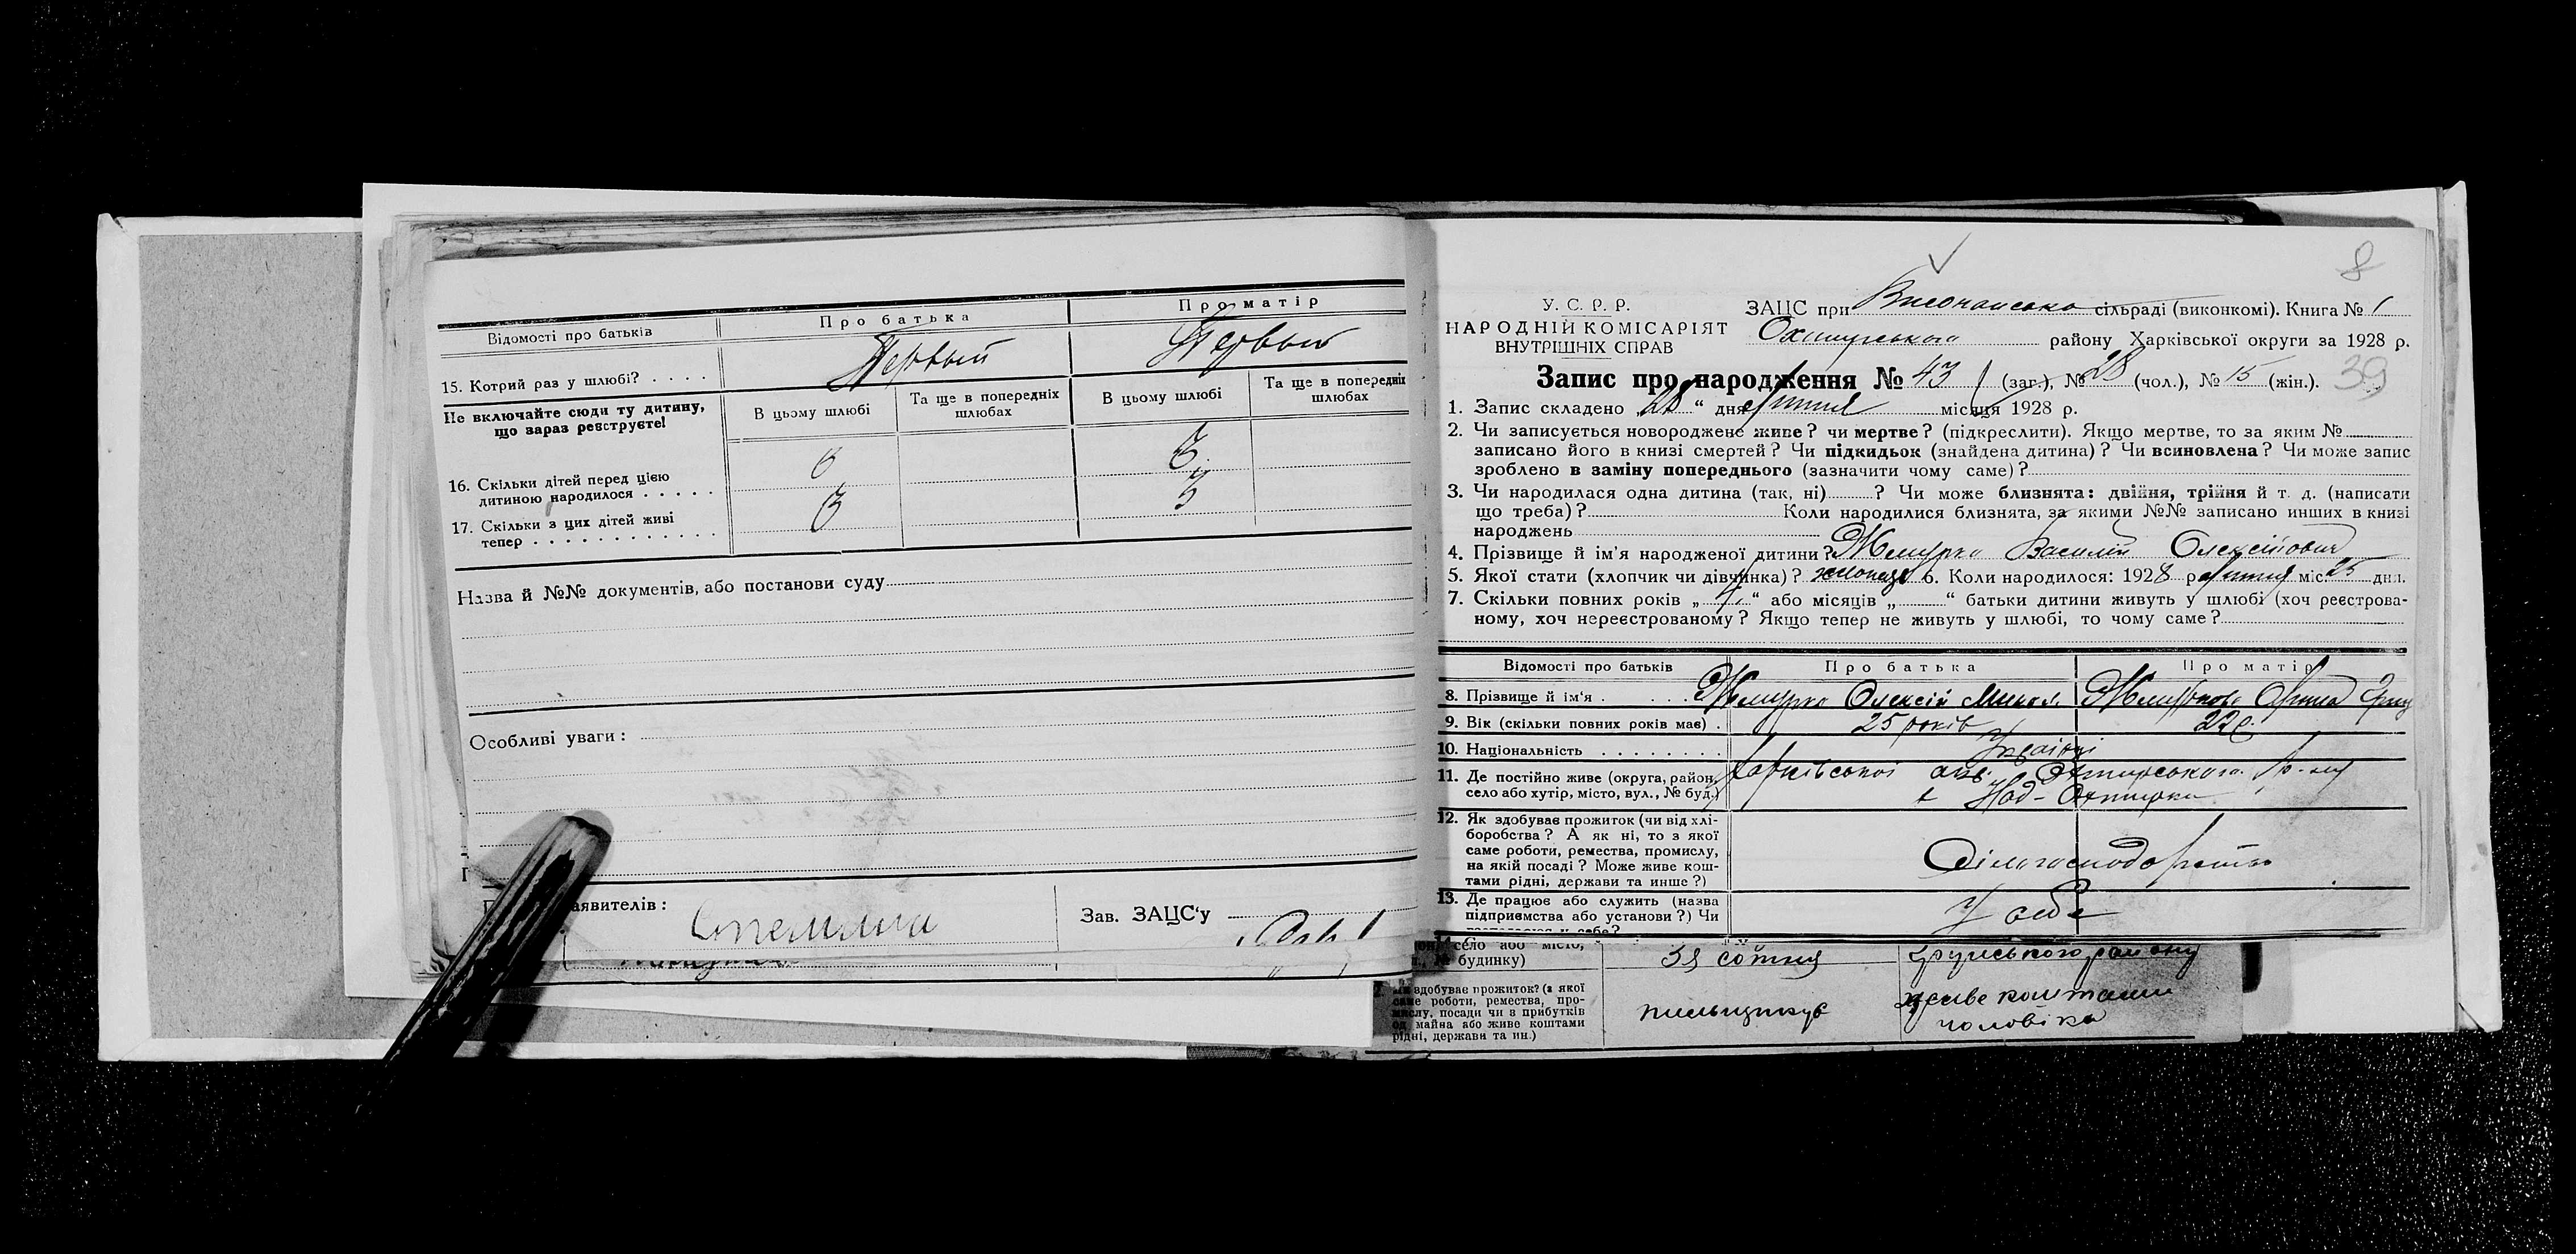 Відомості про батьків
Про батька
Про матір
15. Котрий раз у шлюбі? . . . .
Первый
Первый
Не включайте сюди ту дитину,
що зараз реєструєте!
В цьому шлюбі
Та ще в попередніх
шлюбах
В цьому шлюбі
Та ще в попередніх
шлюбах
16. Скільки дітей перед цією
дитиною народилося . . . . .
17. Скільки з цих дітей живі
тепер . . . . . . . . . . . .
3
3
Назва й №№ документів, або постанови суду
Особливі уваги:
аявителів:
Зав. ЗАЦС'у
8
У. С. Р. Р.
НАРОДНІЙ КОМІСАРІЯТ
ВНУТРІШНІХ СПРАВ
ЗАЦС при сільраді (виконкомі). Книга № 1
Охтирського району Харківської округи за 1928 р.
Запис про народження № 43 (заг.), № 28 (чол.), № 15 (жін.). 39
1. Запис складено „28“ дня місяця 1928 р.
2. Чи записується новороджене живе? чи мертве? (підкреслити). Якщо мертве, то за яким №
записано його в книзі смертей? Чи підкидьок (знайдена дитина)? Чи всиновлена? Чи може запис
зроблено в заміну попереднього (зазначити чому саме)?
3. Чи народилася одна дитина (так, ні) ? Чи може близнята: двійня, трійня й т. д. (написати
що треба)? Коли народилися близнята, за якими №№ записано инших в книзі
народжень
4. Прізвище й ім'я народженої дитини? Василій Олексійович
5. Якої стати (хлопчик чи дівчинка)? хлопець 6. Коли народилося: 1928 р. міс. 25 дня.
7. Скільки повних років „4“ або місяців „ “ батьки дитини живуть у шлюбі (хоч реєстрова-
ному, хоч нереєстрованому? Якщо тепер не живуть у шлюбі, то чому саме?
Відомості про батьків
Про батька
Про матір
8. Прізвище й ім'я . . . .
Олексій Микол.
9. Вік (скільки повних років має) .
25 років
22 р.
10. Національність . . . . . . . .
Українці
11. Де постійно живе (округа, район,
село або хутір, місто, вул., № буд.)
Харківської окр. Охтирського р-ну
Над-Охтирка
12. Як здобуває прожиток (чи від хлі-
боробства? А як ні, то з якої
саме роботи, ремества, промислу,
на якій посаді? Може живе кош-
тами рідні, держави та инше?)
Сільгосподарство
13. Де працює або служить (назва
підприємства або установи?) Чи
У себе
село або місто,
будинку)
сотня
району
здобуває прожиток? (з якої
саме роботи, ремества, про-
мислу, посади чи з прибутків
од майна або живе коштами
рідні, держави та ин.)
живе коштами
чоловіка